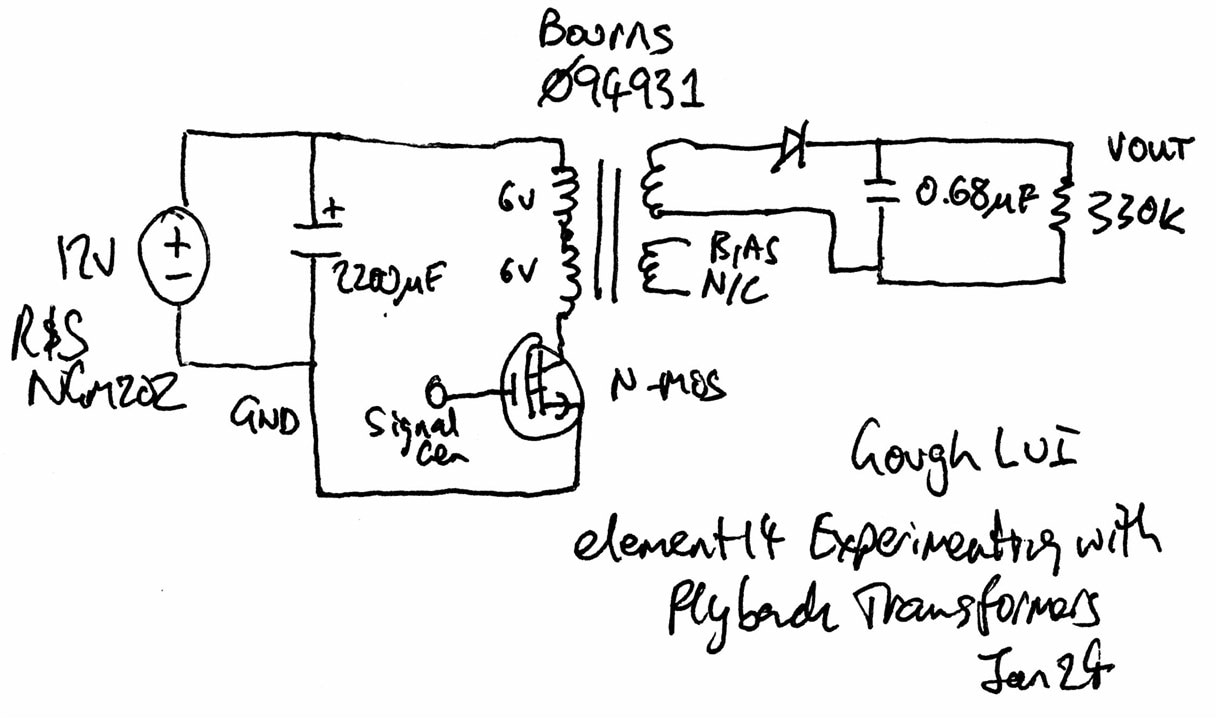 Bourns
094931
VOUT
6V
0.68µF
330K
12V
2200µF
6V
BIAS
N/C
R&S
NGM202
GND
Signal
Gen
N-MOS
Gough LUI
element14 Experimenting with
Flyback Transformers
Jan 24